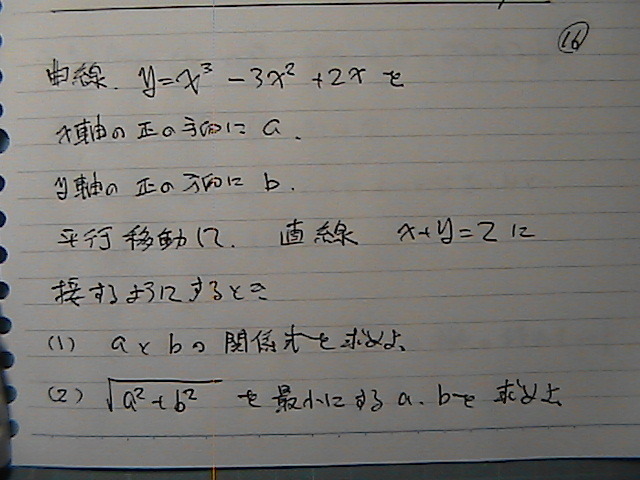 ⑯
曲線. y=x³-3x²+2x を
x軸の正の方向に a.
y軸の正の方向に b.
平行移動して. 直線 x+y=2に
接するようにするとき
(1) aとbの関係式を求めよ.
(2) √a²+b² を最小にするa.bを求めよ.